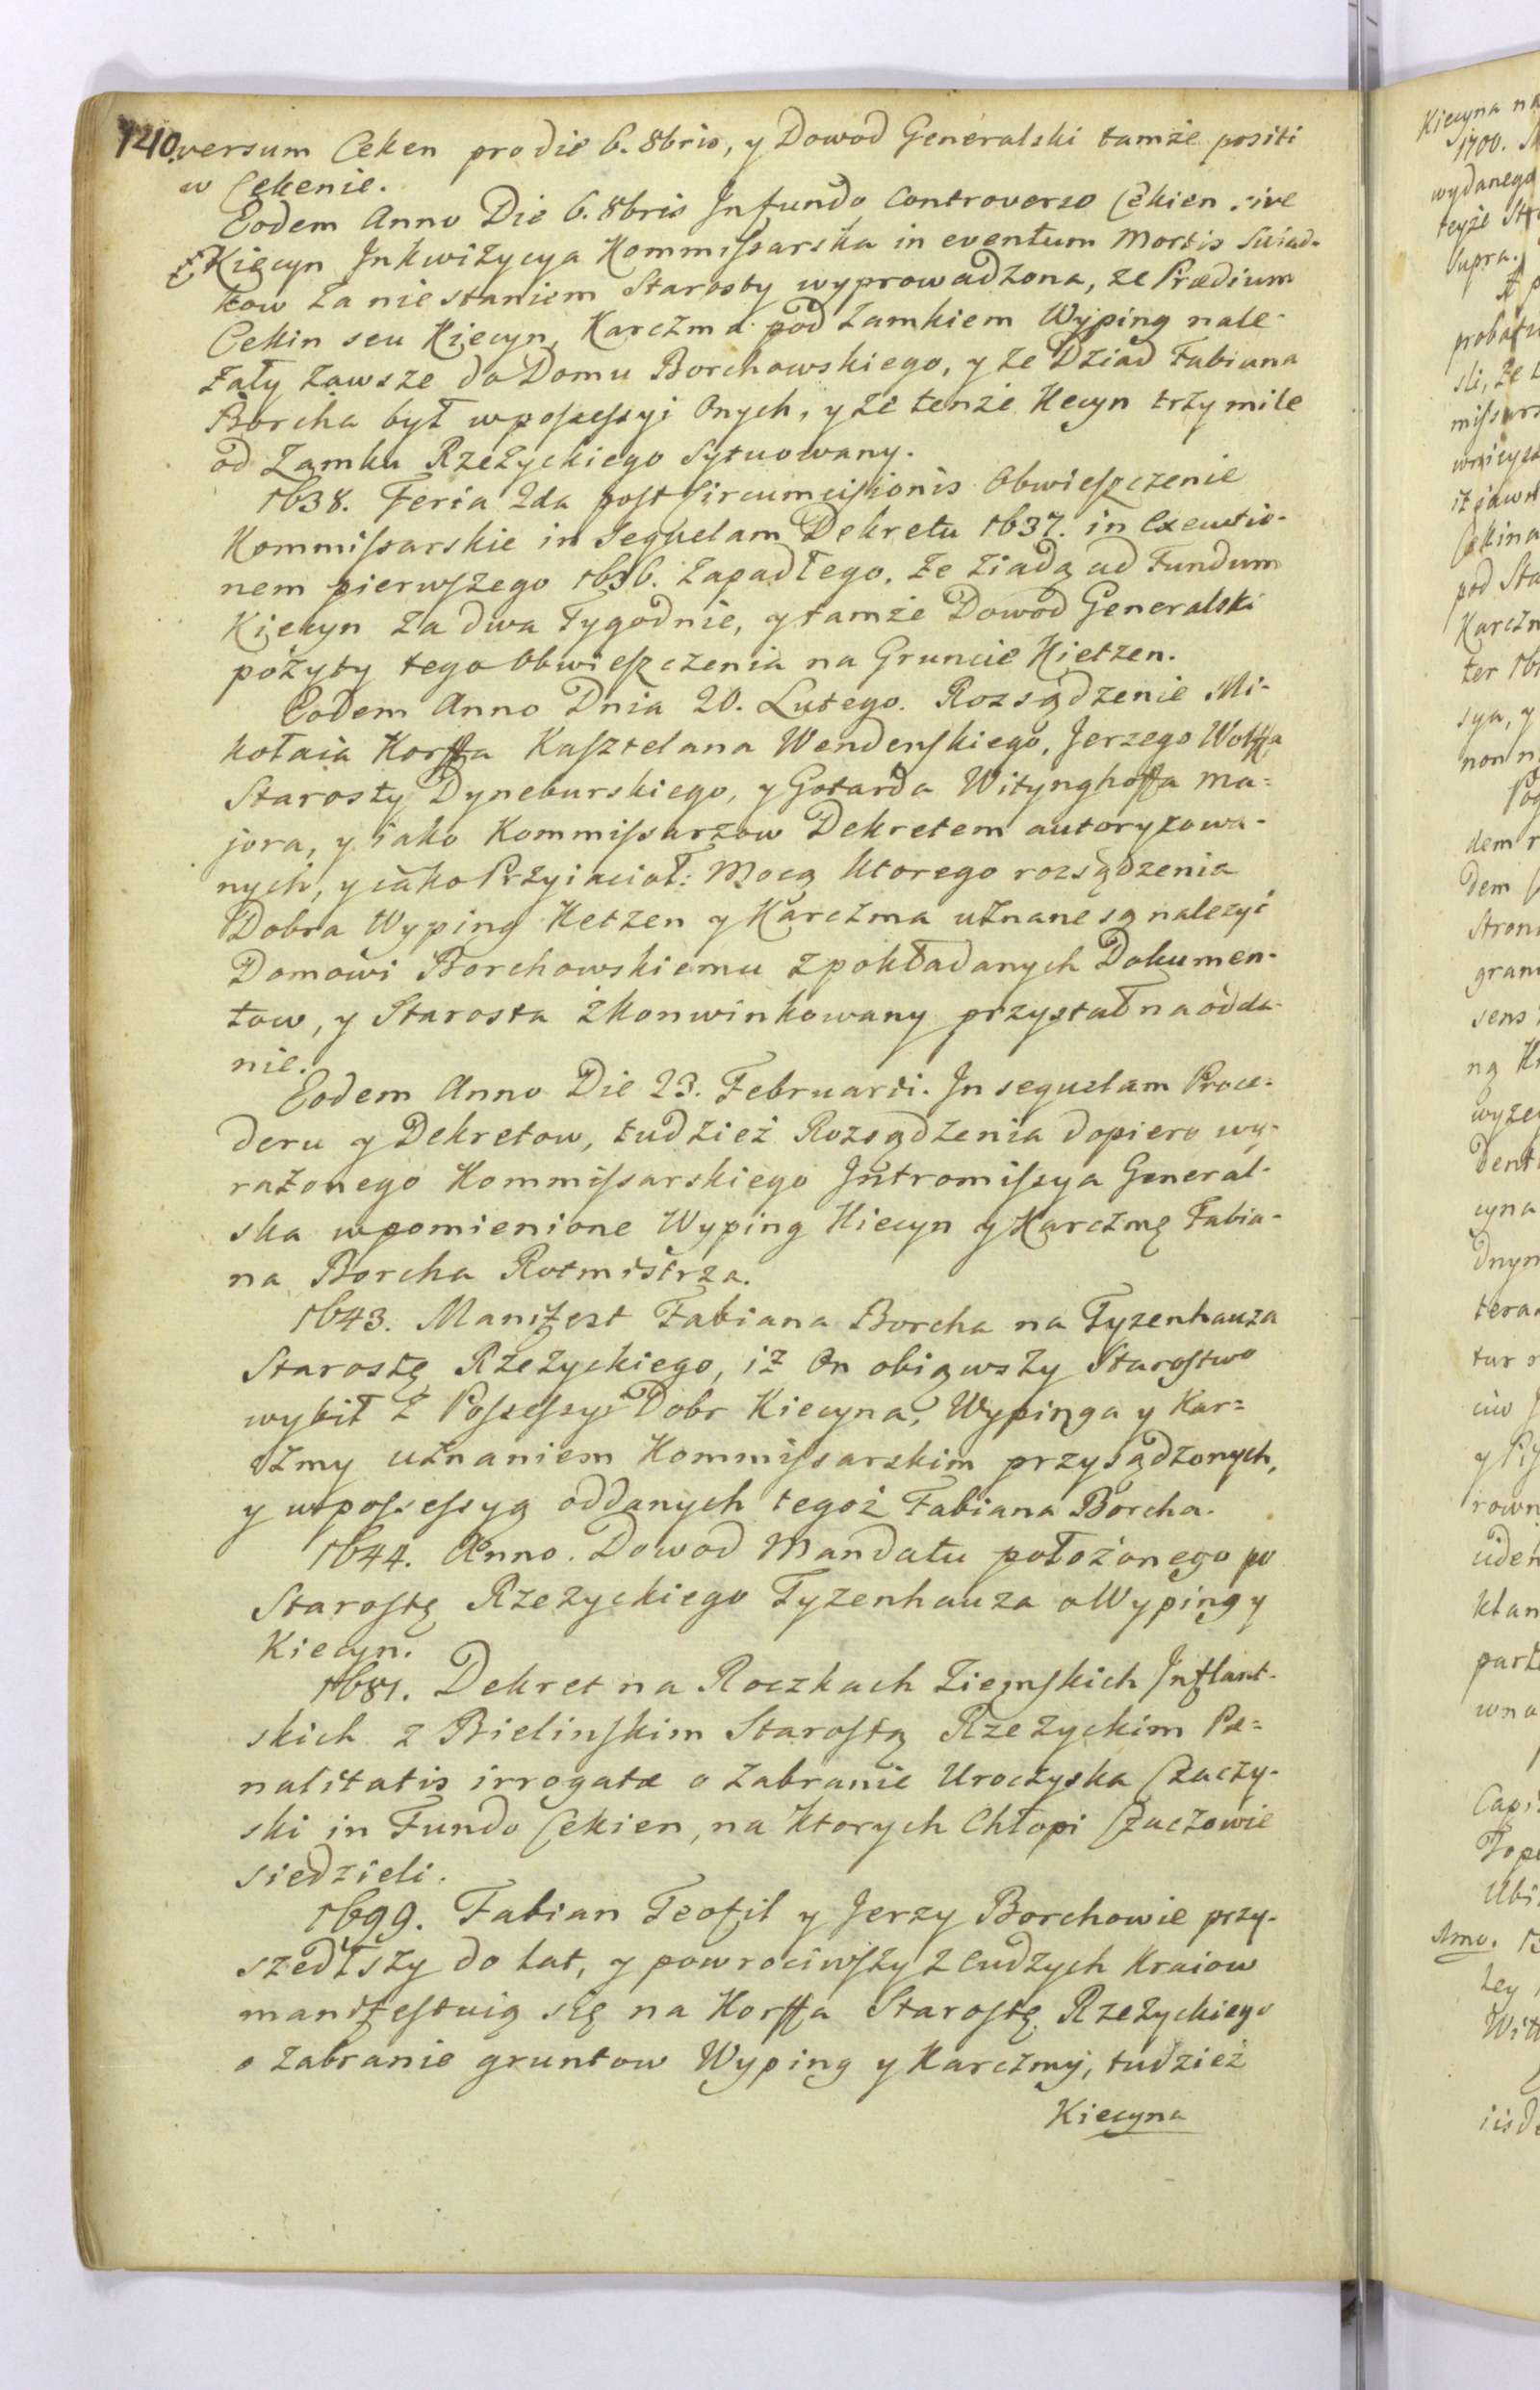 140. versum Ceken pro die 6. 8bris, y Dowod Generalski tamże positi
w Cekenie.
Eodem Anno Die 6. 8bris In fundo Controverso Cekien sive
Kięcyn Inkwiżycya Kommissarska in eventum Mortis Swiad-
kow za niestaniem Starosty wyprowadzona, ze Prædium
Cekin seu Kięcyn, Karczma pod Zamkiem Wyping nale-
żały zawsze do Domu Borchowskiego, y że Dziad Fabiana
Borcha był w possessyi Onych, y że tenże Kecyn trzy mile
od Zamku Rzeżyckiego Sytuowany.
1638. Feria 2da post Circumcisionis Obwieszczenie
Kommissarskie in Sequelam Dekretu 1637. in Executio-
nem pierwszego 1636. zapadłego, że ziadą ad Fundum
Kięcyn za dwa Tygodnie, y tamże Dowod Generalski
pożyty tego Obwieszczenia na Gruncie Kietzen.
Eodem Anno Dnia 20. Lutego. Rozsądzenie Mi-
kołaia Korffa Kasztelana Wendenskiego, Jerzego Wolffa
Starosty Dyneburskiego, y Gotarda Witynghoffa Ma-
jora, y iako Kommissarzow Dekretem autoryzowa-
nych, y iako Przyiacioł: Mocą ktorego rozsądzenia
Dobra Wyping Ketzen y Karczma uznane są należyć
Domowi Borchowskiemu z pokładanych Dokumen-
tow, y Starosta zkonwinkowany przystał na odda-
nie.
Eodem Anno Die 23. Februarii. In sequelam Proce-
deru y Dekretow, tudzież Rozsądzenia dopiero wy-
rażonego Kommissarskiego Intromissya General-
ska w pomienione Wyping Kiecyn y Karczmę Fabia-
na Borcha Rotmistrza.
1643. Manifest Fabiana Borcha na Tyzenhauza
Starostę Rzeżyckiego, iż On obiąwszy Starostwo
wybił z Possessyi Dobr Kiecyna, Wypinga y Kar-
czmy uznaniem Kommissarskim przysądzonych,
y w possessyą oddanych tegoż Fabiana Borcha.
1644. Anno. Dowod Mandatu położonego po
Starostę Rzeżyckiego Tyzenhauza o Wyping y
Kiecyn.
1681. Dekret na Roczkach Ziemskich Inflant-
skich z Bielinskim Starostą Rzeżyckim Pæ-
nalitatis irrogatæ o zabranie Uroczyska Czaczy-
ski in Fundo Cekien, na ktorych Chłopi Czaczowie
siedzieli.
1699. Fabian Teofil y Jerzy Borchowie przy-
szedłszy do lat, y powrociwszy z cudzych Kraiow
manifestuią się na Korffa Starostę Rzeżyckiego
o zabranie gruntow Wyping y Karczmy, tudzież
Kiecyna